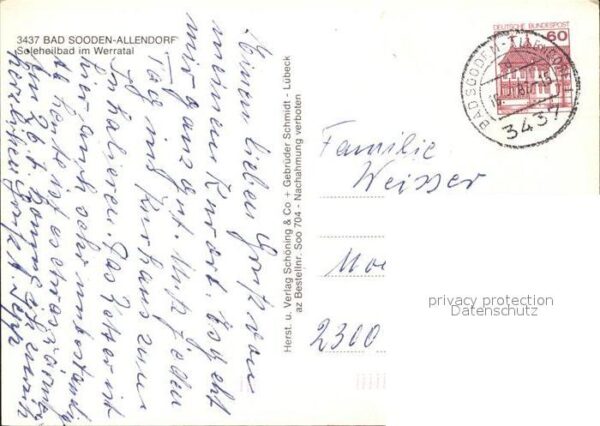 3437 BAD SOODEN-ALLENDORF
Soleheilbad im Werratal
Einen lieben Gruß von
meinem Kurort. Es geht
mir ganz gut. Muß jeden
Tag ins Kurhaus zum
Inhalieren. Das Wetter ist
hier auch sehr unbeständig
heute ist es etwas
herzlichen Gruß
Herst. u. Verlag Schöning & Co + Gebrüder Schmidt - Lübeck
az Bestellnr. Soo 704 - Nachahmung verboten
DEUTSCHE BUNDESPOST
60
BAD SOODEN-ALLENDORF 1
3437
Familie
Weisser
2300
privacy protection
Datenschutz